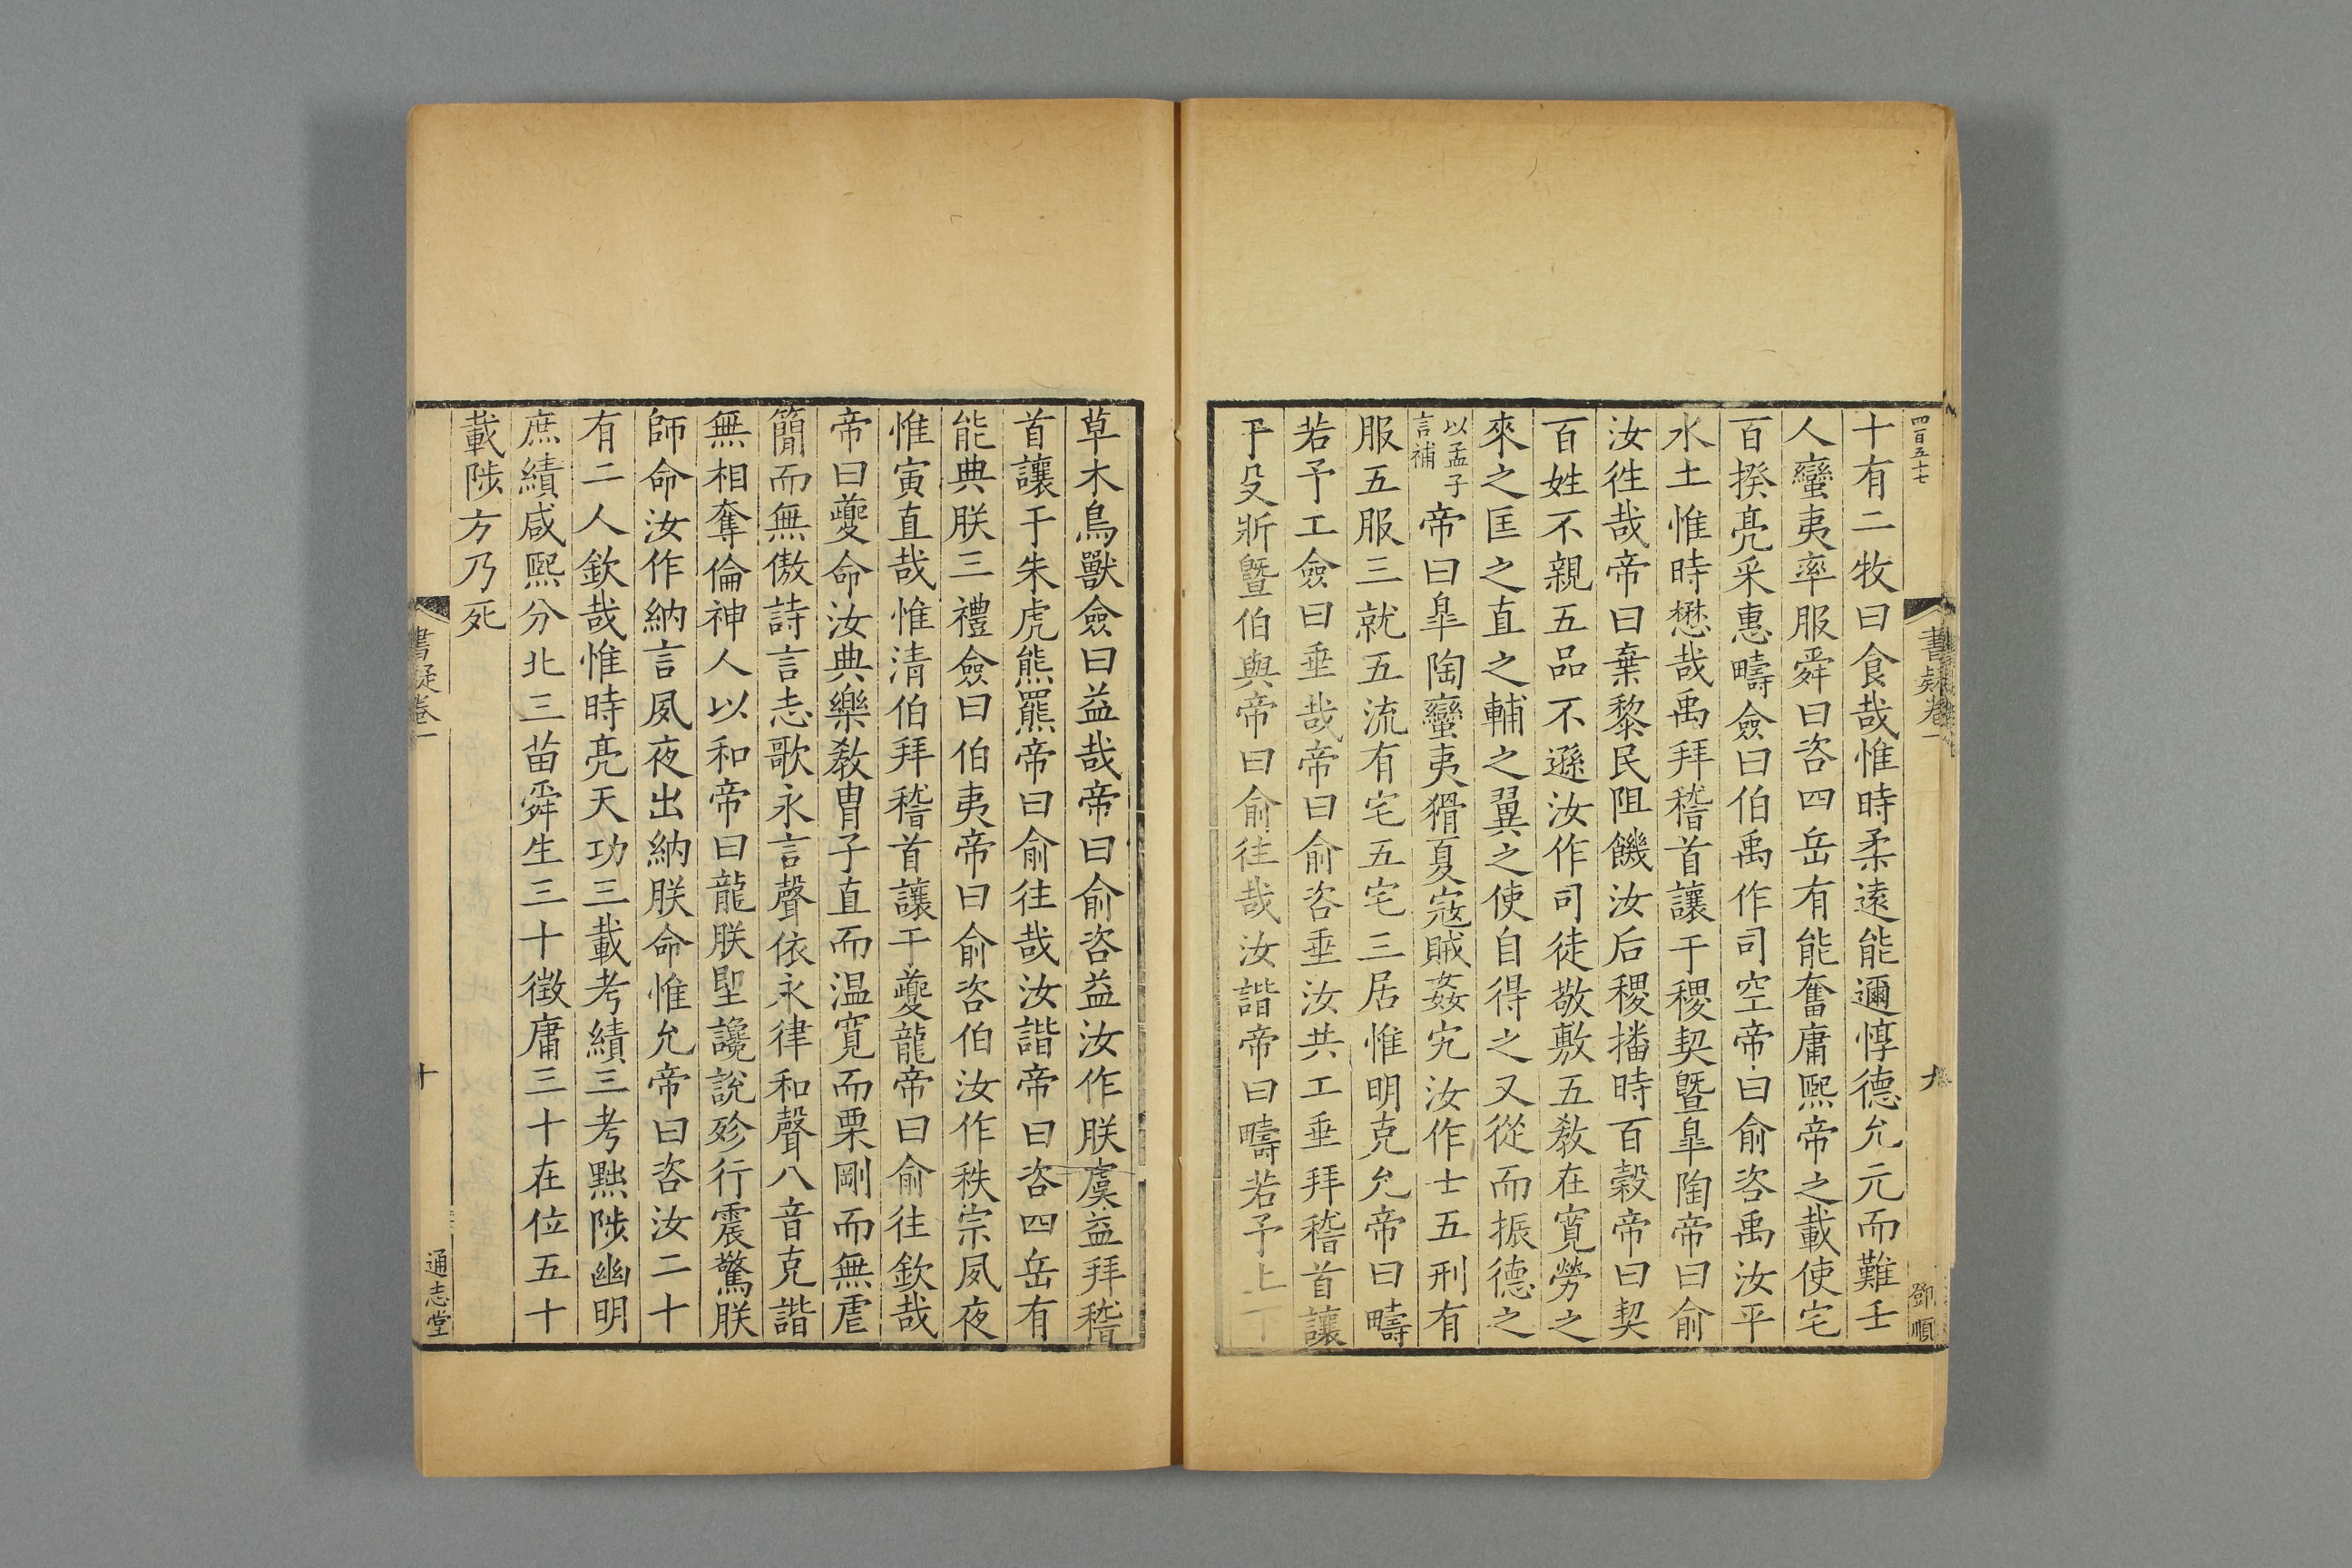 四百五十七
書疑卷一
九
鄧順
十有二牧曰食哉惟時柔遠能邇惇德允元而難壬
人蠻夷率服舜曰咨四岳有能奮庸熙帝之載使宅
百揆亮采惠疇僉曰伯禹作司空帝曰俞咨禹汝平
水土惟時懋哉禹拜稽首讓于稷契曁皐陶帝曰俞
汝徃哉帝曰棄黎民阻饑汝后稷播時百穀帝曰契
百姓不親五品不遜汝作司徒敬敷五敎在寛勞之
來之匡之直之輔之翼之使自得之又從而振德之
以孟子
言補
帝曰皐陶蠻夷猾夏寇賊姦宄汝作士五刑有
服五服三就五流有宅五宅三居惟明克允帝曰疇
若予工僉曰垂哉帝曰俞咨垂汝共工垂拜稽首讓
于殳斨曁伯與帝曰俞往哉汝諧帝曰疇若予上下
草木鳥獸僉曰益哉帝曰俞咨益汝作朕虞益拜稽
首讓于朱虎熊羆帝曰俞往哉汝諧帝曰咨四岳有
能典朕三禮僉曰伯夷帝曰俞咨伯汝作秩宗夙夜
惟寅直哉惟清伯拜稽首讓于夔龍帝曰俞往欽哉
帝曰夔命汝典樂敎胄子直而温寛而栗剛而無虐
簡而無傲詩言志歌永言聲依永律和聲八音克諧
無相奪倫神人以和帝曰龍朕堲讒說殄行震驚朕
師命汝作納言夙夜出納朕命惟允帝曰咨汝二十
有二人欽哉惟時亮天功三載考績三考黜陟幽明
庶績咸熙分北三苗舜生三十徵庸三十在位五十
載陟方乃死
書疑卷一
十
通志堂